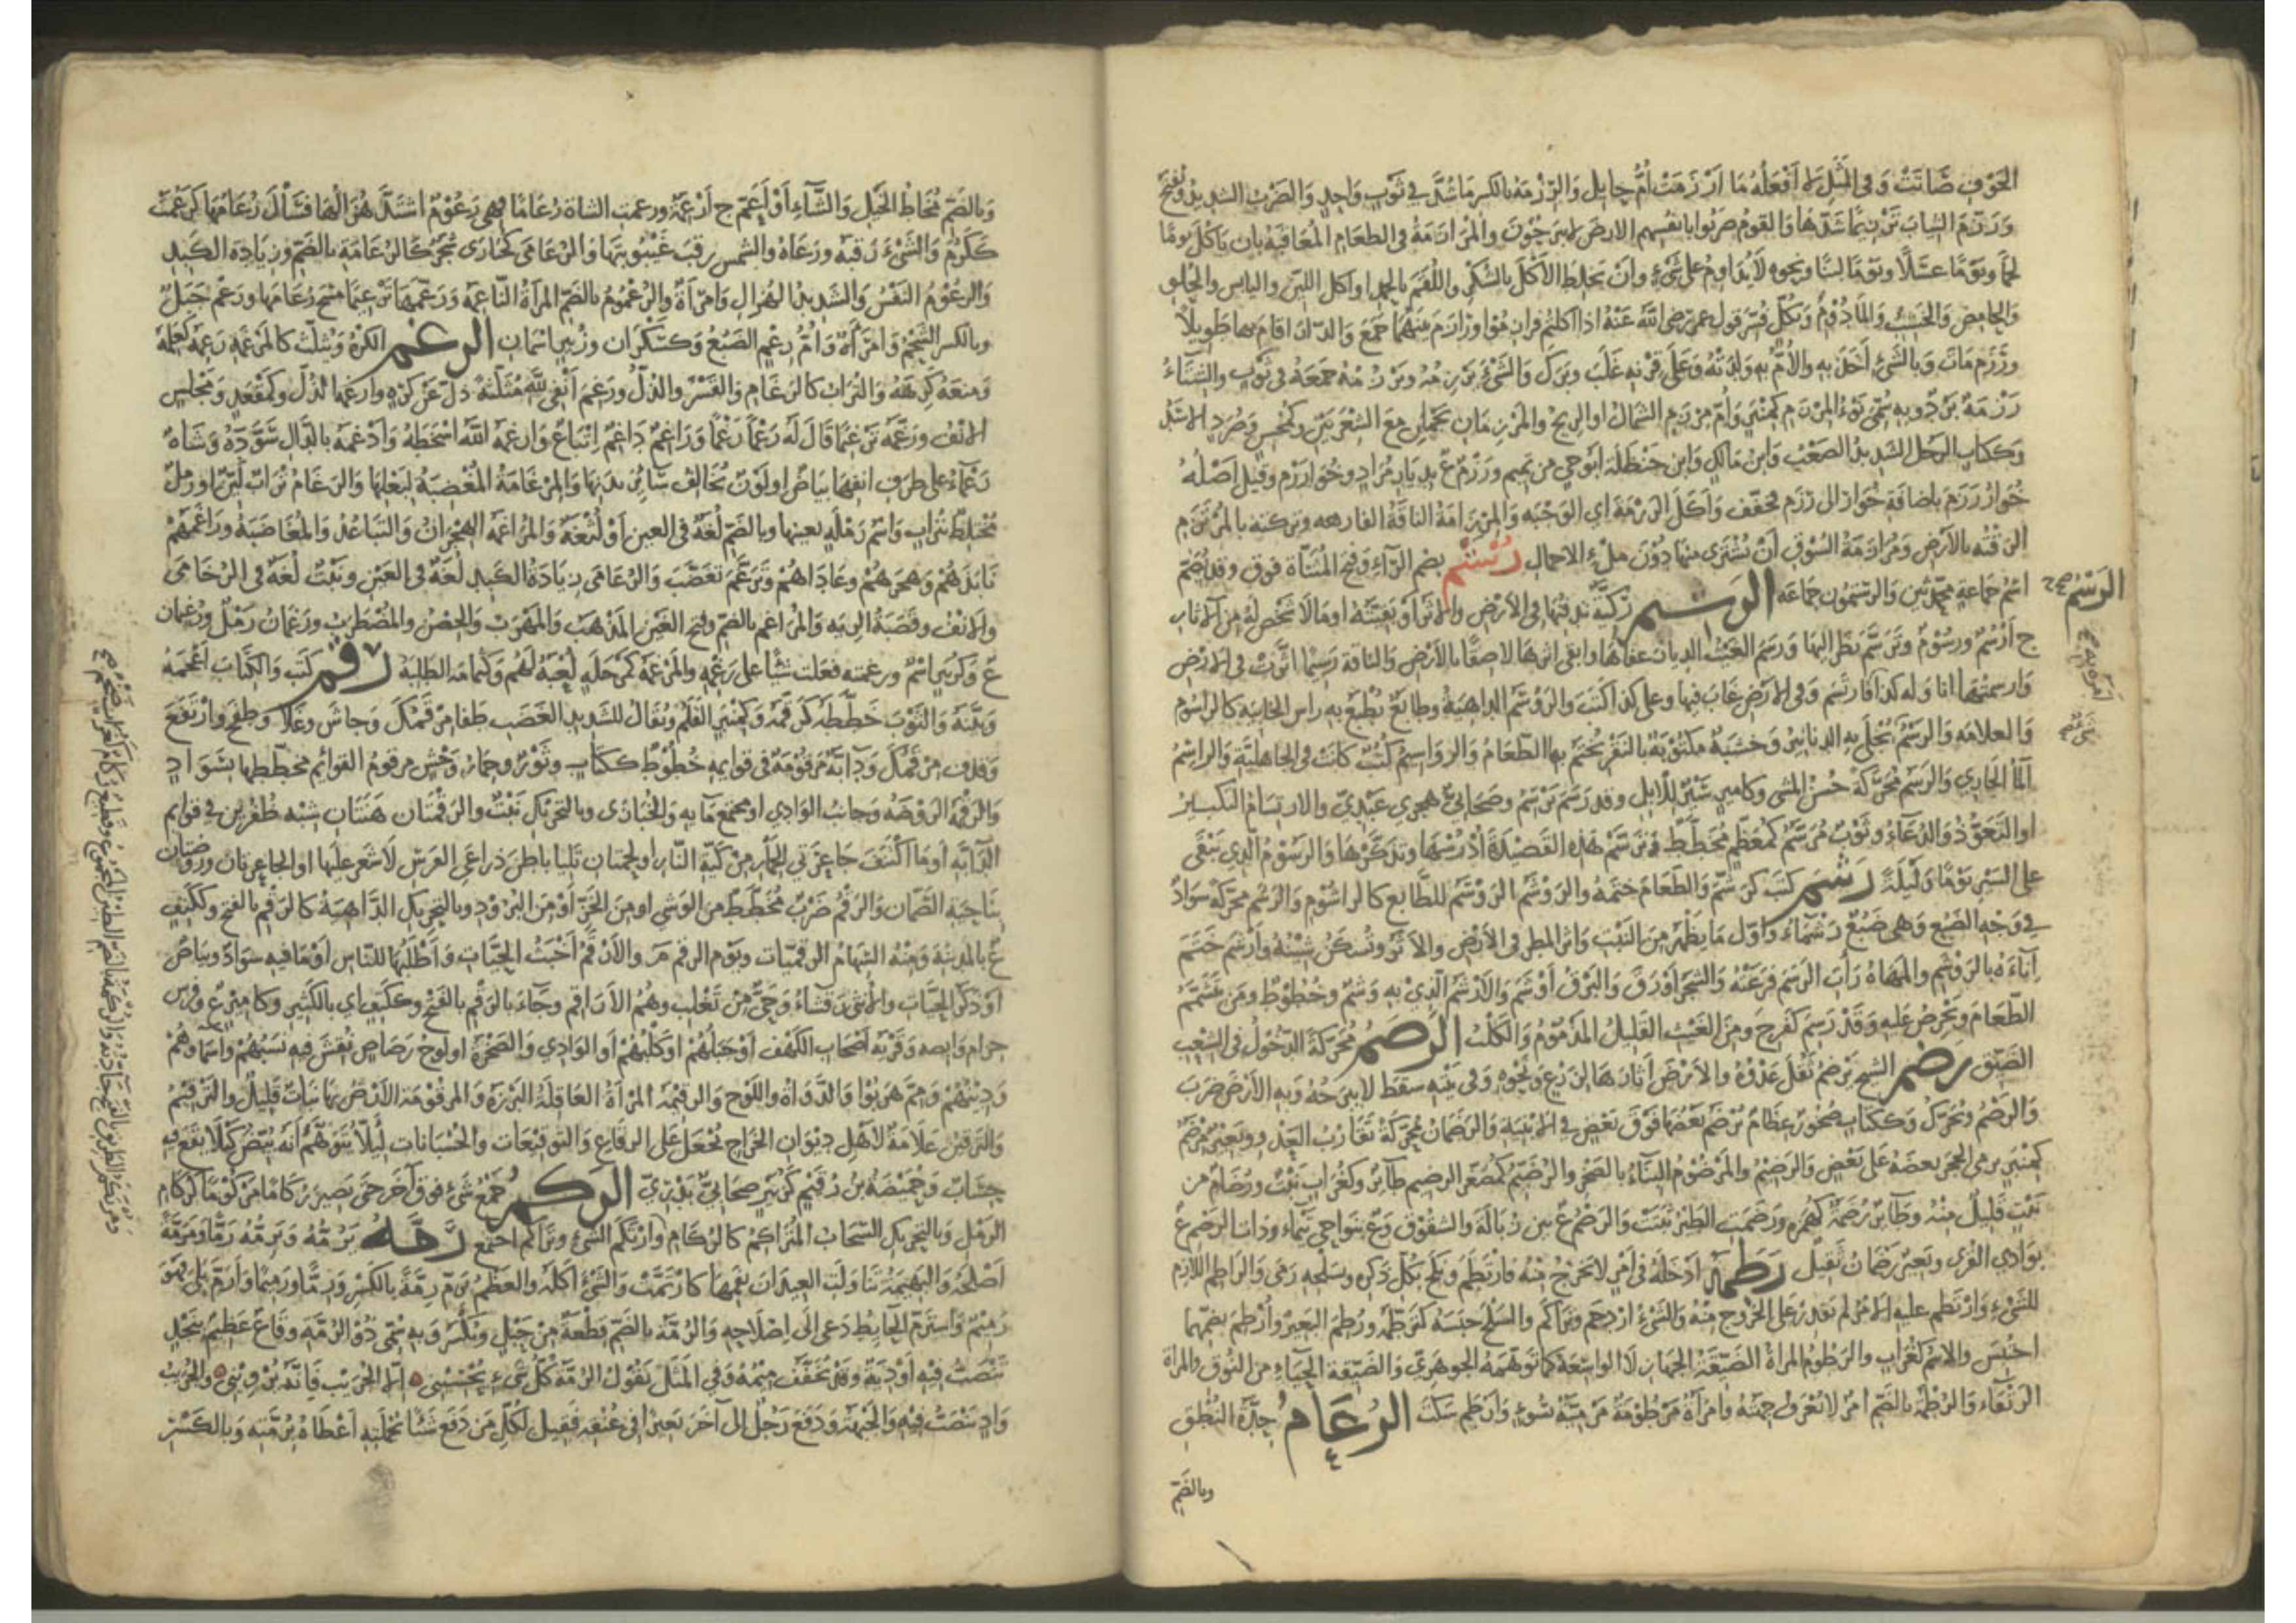 الخوف ضانت وفى المثل لا أفعله ما ارزمت أم حايل والرزمة بالكسر ماشد في ثوب واحد والضرب الشديد ويفتح
ورزم الثياب ترزيما شدها والقوم ضربوا بانفسهم الارض لا يبرحون والمرازمة فى الطعام المعاقبة بان ياكل يوما
لحما ويوما عسلا ويوما لبنا ونحوه لا يداوم على شىء وان يخلط الاكل بالشكر واللقم بالحمد او اكل اللين واليابس والحلو
والحامض والجشب والمادوم وبكل فسر قول عمر رضى الله عنه اذا اكلتم فرازموا ورازم بينهما جمع والدار اقام بها طويلا
ورزم مات وبالشىء أخذ به والام به ولدته وعلى قرنه غلب وبرك والشىء يرزمه ويرزمه جمعه فى ثوب والشتاء
رزمة برد وبه سمى نوء المرزم كمنبر وأم مرزم الشمال او الريح والمرزمان نجمان مع الشعريين وكمحسن وصرد الاسد
وككتاب الرجل الشديد الصعب وابن مالك وابن حنظلة ابو حى من تميم ورزم ع بديار مراد وخوارزم وقيل اصله
خوار رزم باضافة خوار الى رزم مخفف واكل الرزمة اى الوجبة والمرزامة الناقة الفارهة وتركته بالمرتزم
الزقته بالارض ومرازمة السوق أن تشترى منها دون ملء الاحمال رستم بضم الراء وفتح المثناة فوق وقد تضم
اسم جماعة محدثين والرستميون جماعة الرسم ركية تدفنها فى الارض والاثر او بقيته او ما لا شخص له من الآثار
الرسم صح
ج أرسم ورسوم وترسم نظر اليها ورسم الغيث الديار عفاها وابقى اثرها لاصقا بالارض والناقة رسيما اثرت فى الارض
وارسمتها انا وله كذا فارتسم وفى الارض غاب فيها وعلى كذا كتب والروسم الداهية وطابع يطبع به راس الخابية كالراسوم
والعلامة والرسم تجلى به الدنانير وخشبة مكتوبة بالنقر يختم بها الطعام والرواسيم كتب كانت فى الجاهلية والراسم
الماء الجاري والرسم محركة حسن المشى وكامير سير للابل وقد رسم يرسم وصحابى هجرى عبدى والارتسام التكبير
او التعوذ والدعاء وثوب مرسم كمعظم مخطط وترسم هذه القصيدة أدرسها وتذكرها والرسوم الذي يبقى
على السير يوما وليلة رشم كتب كرشم والطعام ختمه والروشم الروسم للطابع كالراشوم والرشم محركة سواد
في وجه الضبع وهى ضبع رشماء واول ما يظهر من النبت واثر المطر فى الارض والاثر وتسكن شينه وأرشم ختم
اناءه بالروشم والمهاة رأت الرشم فرعته والشجر أورق والبرق أوشم والأرشم الذي به وشم وخطوط ومن يتشمم
الطعام ويحرص عليه وقد رشم كفرح ومن الغيث القليل المذموم والكلب الرصم محركة الدخول فى الشعب
الضيق رضم الشيخ يرضم ثقل عدوه والارض أثارها لزرع ونحوه وفى بيته سقط لا يبرحه وبه الارض ضرب
والرضم ويحرك وككتاب صخور عظام يرضم بعضها فوق بعض فى الابنية والرضمان محركة تقارب العدو وبعير مرضم
كمنبر يرمى الحجر بعضه على بعض والرضيم والمرضوم البناء بالصخر والرضيم كمصغر الرضيم طائر وكغراب نبت ورضام من
نبت قليل منه وطاير رضمة كهمزة ورضمت الطير ثبتت والرضم ع بين زبالة والشقوق وع بنواحى تيماء وذات الرضم ع
بوادي القرى وبعير رضمان ثقيل رطمه ادخله فى أمر لا يخرج منه فارتطم ونكح بكل ذكره وبسلحه رمى والراطم اللازم
للشىء وارتطم عليه الامر لم يقدر على الخروج منه والشىء ازدحم وتراكم والسلح حبسه كترطمه ورطم البعير وأرطم بضمهما
احتبس والاسم كغراب والرطوم المراة الضيقة الجهاز لا الواسعة كما توهمه الجوهرى والضيقة الحياء من النوق والمراة
الرتقاء والرطمة بالضم امر لا تعرف جهته وامراة مرطومة مرمية بسوء وأرطم سكت الرعام حدة النظر
وبالضم
وبالضم مخاط الخيل والشاء أو أعم ج أرعمة ورعمت الشاة رعاما فهي رعوم اشتد هزالها فسال رعامها كرعمت
ككرم والشىء رقبه ورعاه والشمس رقب غيبوبتها والرعامى كحبارى شجر كالرعامة بالضم وزيادة الكبد
والرعوم النفس والشديد الهزال وامرأة والرعموم بالضم المرأة الناعمة ورعمها ترعيما مسح رعامها ورعم جبل
وبالكسر الشحم وامرأة وأم رعم الضبع وكسكران وزبير اسمان الرغم الكره ويثلث كالمرغمة رغمه كعلمه
ومنعه كرهه والتراب كالرغام والقسر والذل ورغم أنفى لله مثلثة ذل عن كره وارغمه الذل وكمقعد ومجلس
الانف ورغمه ترغيما قال له رغما رغما وراغم داغم إتباع وارغمه الله اسخطه وادغمه بالدال سوده وشاة
رغماء على طرف انفها بياض او لون يخالف سائر بدنها والمرغامة المغضبة لبعلها والرغام تراب لين او رمل
مختلط بتراب واسم رملة بعينها وبالضم لغة فى العين أو لثغة والمراغمة الهجران والتباعد والمغاضبة وراغمهم
نابذهم وهجرهم وعاداهم وترغم تغضب والرغامى زيادة الكبد لغة فى العين ونبت لغة فى الرخامى
والانف وقصبة الرية والمراغم بالضم وفتح الغين المذهب والمهرب والحصن والمضطرب ورغمان رمل ورغيمان
ع وكزبير اسم ورغمته فعلت شيأ على رغمه والمرغمة كمرحلة لعبة لهم وكثمامة الطلبة رقم كتب والكتاب أعجمه
وبينه والثوب خططه كرقمه وكمنبر القلم ويقال للشديد الغضب طفا مرقمك وجاش وغلا وطفح وارتفع
وقذف مرقمك ودابة مرقومة فى قوايمه خطوط ككتاب وثور وحمار وحش مرقوم القوائم مخططها بسواد
والرقمة الروضة وجانب الوادي او مجتمع مايه والخبازى وبالتحريك نبت والرقمتان هنتان شبه ظفرين في قوايم
الدابة أو ما اكتنف جاعرتي الحمار من كية النار او لحمتان تليان باطن ذراعى الفرس لا شعر عليها او الجاعرتان وروضتان
بناحية الصمان والرقم ضرب مخطط من الوشى او من الخز أو من البرود وبالتحريك الداهية كالرقم بالفتح وككتف
ع بالمدينة ومنه السهام الرقميات ويوم الرقم م والأرقم أخبث الحيات وأطلبها للناس أو ما فيه سواد وبياض
أو ذكر الحيات والانثى رقشاء وحى من تغلب وهم الأراقم وجاء بالرقم بالفتح وككتف اي بالكثير وكامير ع وفرس
حزام وابصه وقرية أصحاب الكهف أو جبلهم أو كلبهم أو الوادي والصخرة او لوح رصاص نقش فيه نسبهم وأسماؤهم
ودينهم ومم هربوا والدواة واللوح والرقيمة المرأة العاقلة البرزة والمرقومة الارض بها نبات قليل والترقيم
والترقين علامة لأهل ديوان الخراج تجعل على الرقاع والتوقيعات والحسبانات ليلا يتوهم أنه بيض كيلا يقع فيه
حساب وحميضة بن رقيم كزبير صحابى بدري الركم جمع شىء فوق آخر حتى يصير ركاما مركوما كركام
الرمل وبالتحريك السحاب المتراكم كالركام وارتكم الشىء وتراكم اجتمع رمه يرمه ويرمه رما ومرمة
اصلحه والبهيمة تناولت العيدان بفمها كارتمت والشىء اكله والعظم يرم رمة بالكسر ورما ورميما وأرم بلى فهو
رميم واسترم الحايط دعى إلى إصلاحه والرمة بالضم قطعة من حبل وتكسر وبه سمى ذو الرمة وقاع عظيم بنجد
تنصب فيه أودية وقد تخفف ميمه وفي المثل تقول الرمة كل شىء يحسينى الا الجريب فانه يروينى والجريب
واد تنصب فيه والجبهة ودفع رجل إلى آخر بعيرا في عنقه فقيل لكل من دفع شيا بجملته أعطاه برمته وبالكسر